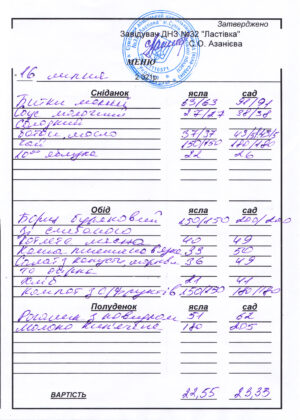 Затверджено
Завідувач ДНЗ №32 "Ластівка"
С.О. Азанієва
МЕНЮ
16 липня
2021р.
Сніданок ясла сад
Битки манні 63/63 91/91
Соус молочний 27/27 38/38
солодкий
масло
Чай 150/150 180/180
10⁰⁰ яблука 22 26
Обід ясла сад
Борщ буряковий 150/150 200/200
зі сметаною
Котлета м'ясна 40 49
Каша 33 50
Салат з капусти моркви 36 49
та огірка
Хліб 21 41
Компот з с/фруктів 150/150 180/180
Полуденок ясла сад
Рогалик з повидлом 51 62
Молоко кип'ячене 180 205
ВАРТІСТЬ 22,55 23,33